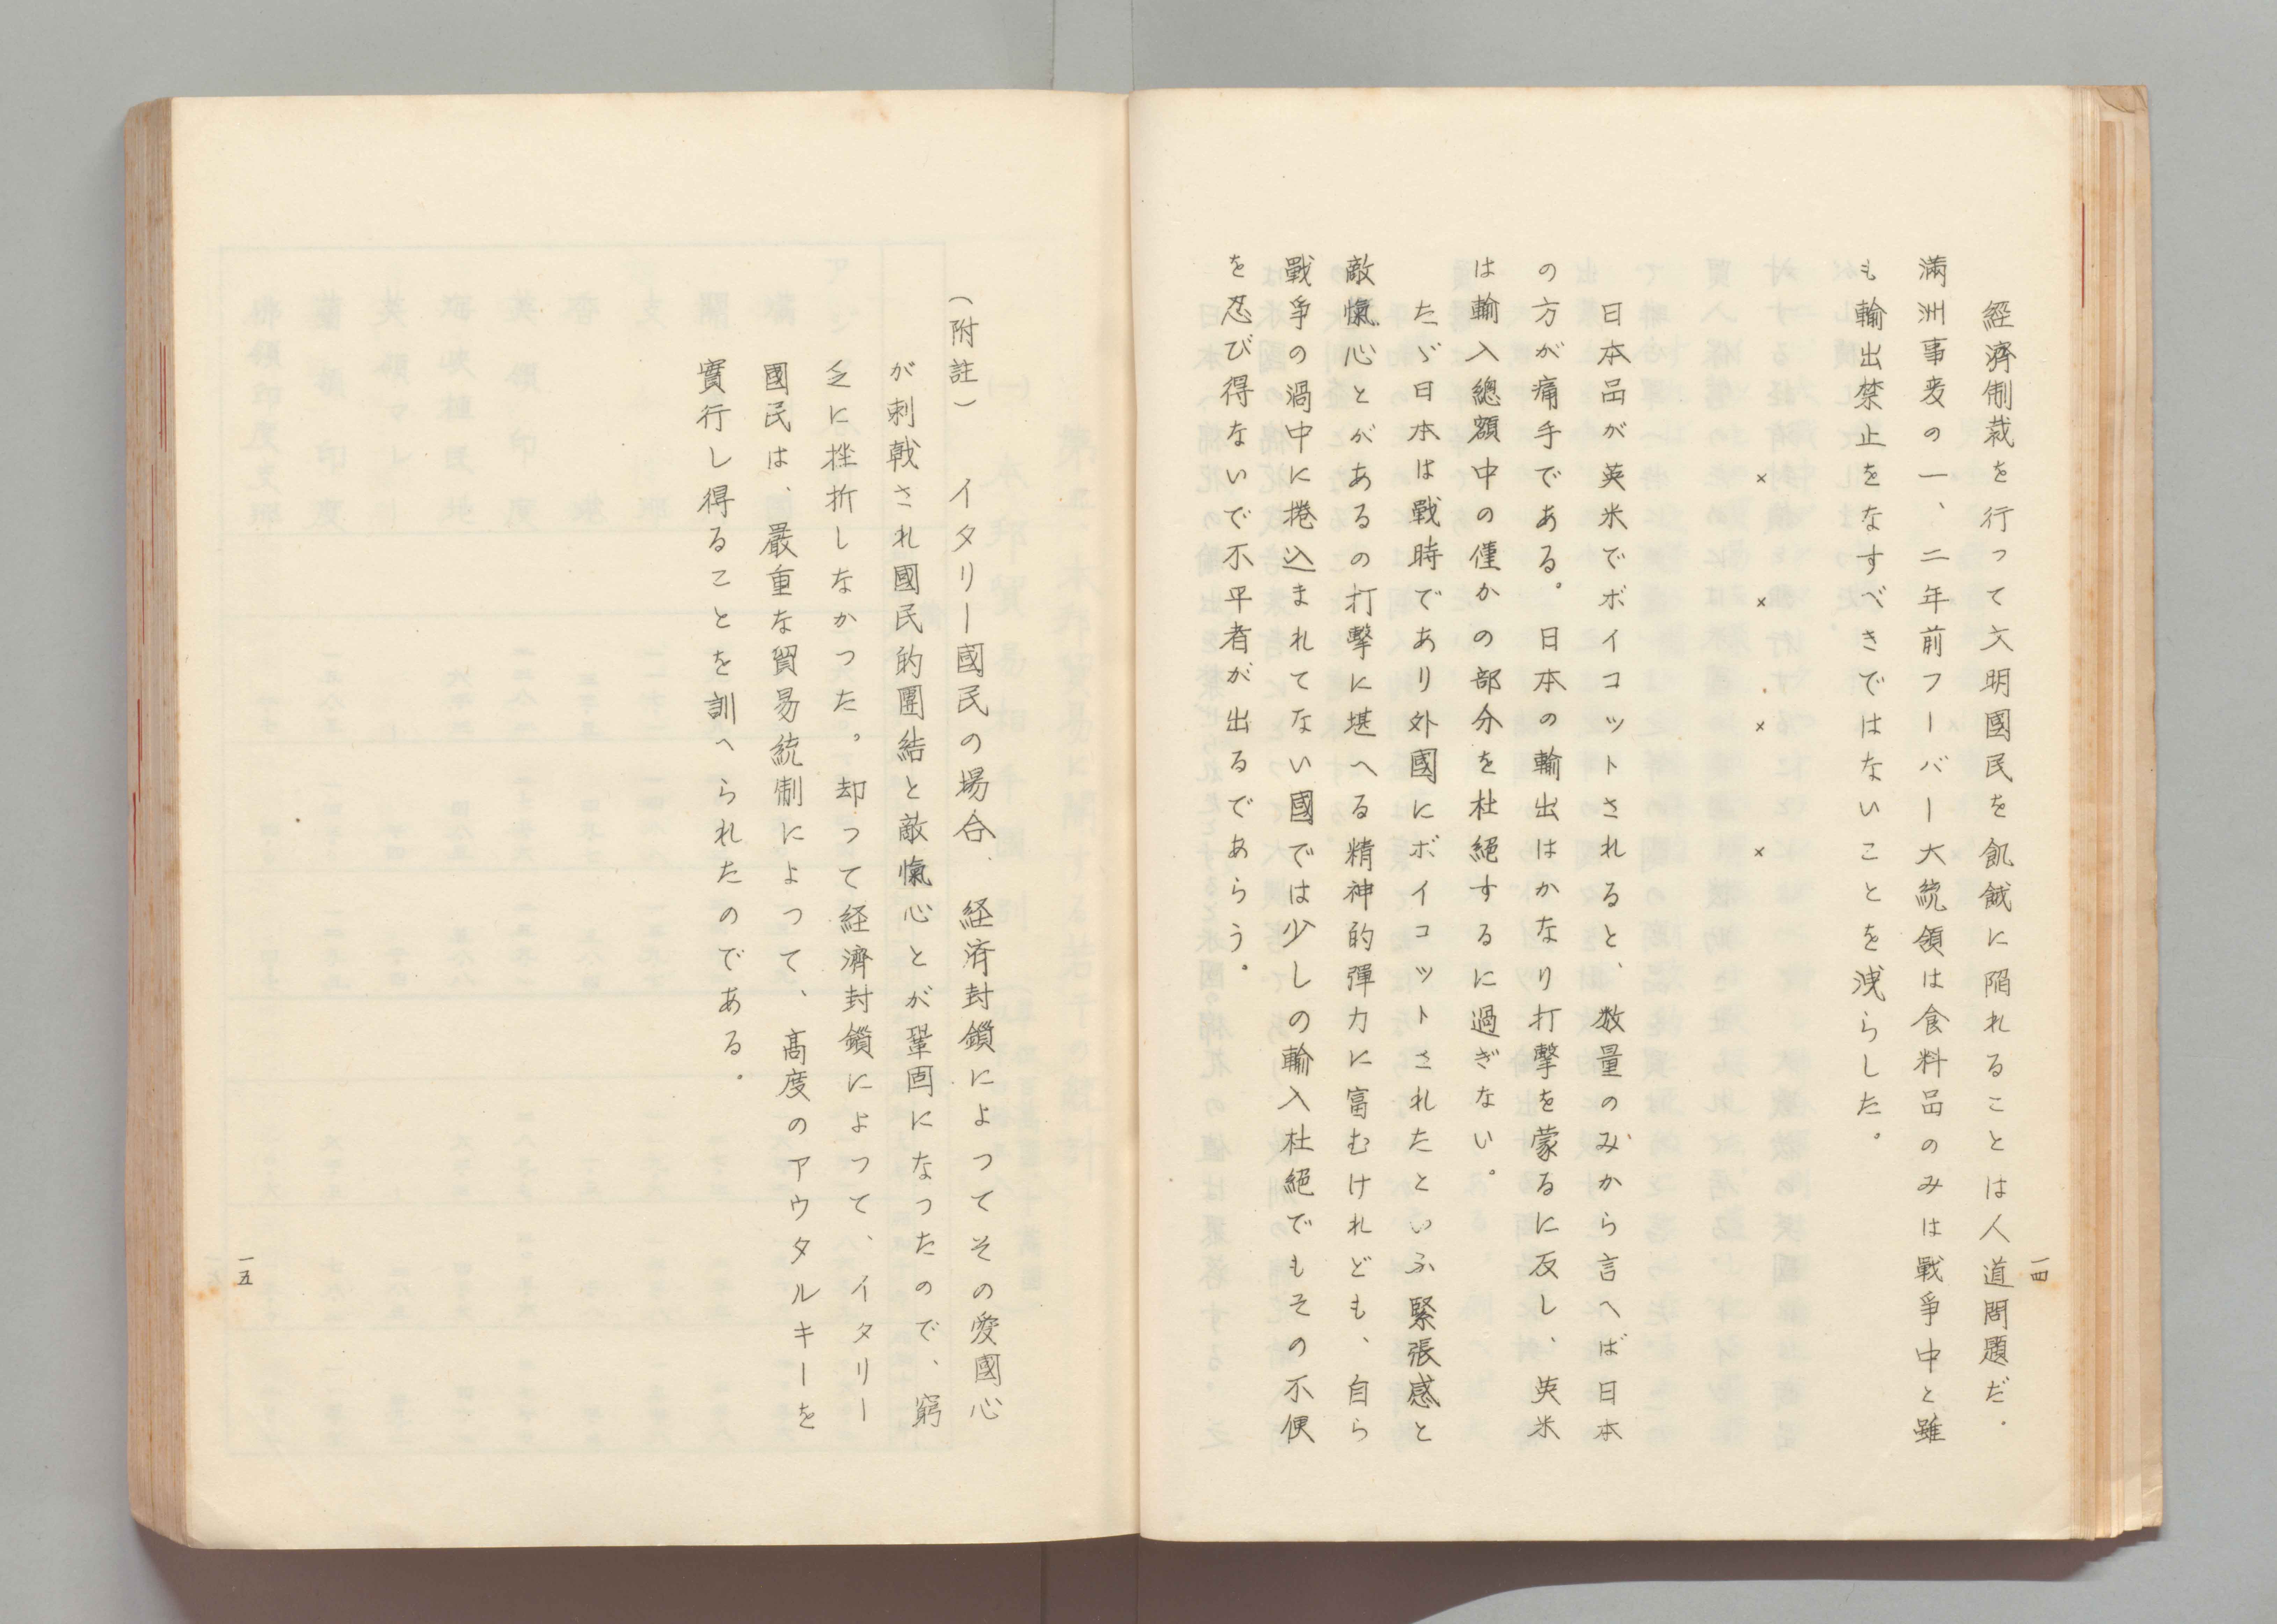 一四
経濟制裁を行って文明國民を飢餓に陥れることは人道問題だ。
滿洲事変の一、二年前フーバー大統領は食料品のみは戰爭中と雖
も輸出禁止をなすべきではないことを洩らした。
× × × ×
日本品が英米でボイコットされると、数量のみから言へば日本
の方が痛手である。日本の輸出はかなり打撃を蒙るに反し、英米
は輸入總額中の僅かの部分を杜絕するに過ぎない。
たゞ日本は戰時であり外國にボイコットされたといふ緊張感と
敵愾心とがあるの打擊に堪へる精神的彈力に富むけれども、自ら
戰爭の渦中に捲込まれてない國では少しの輸入杜絕でもその不便
を忍び得ないで不平者が出るであらう。
（附註） イタリー國民の場合、経済封鎖によってその愛國心
が刺戟され國民的團結と敵愾心とが鞏固になつたので、窮
乏に挫折しなかつた。却って経濟封鎖によつて、イタリー
國民は、嚴重な貿易統制によつて、高度のアウタルキーを
實行し得ることを訓へられたのである。
一五